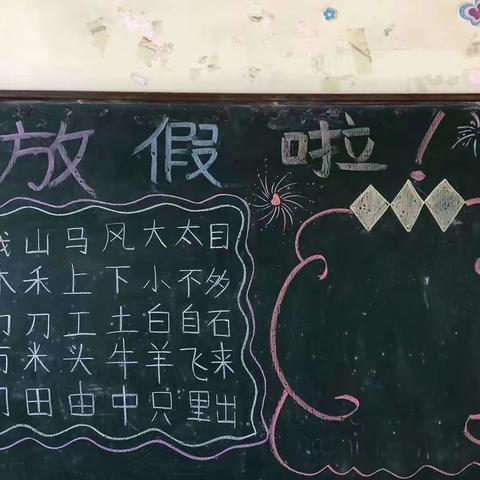 放假啦！
山马风大太目
禾上下小不多
刀工土白自石
米头牛羊飞来
田由中只里出